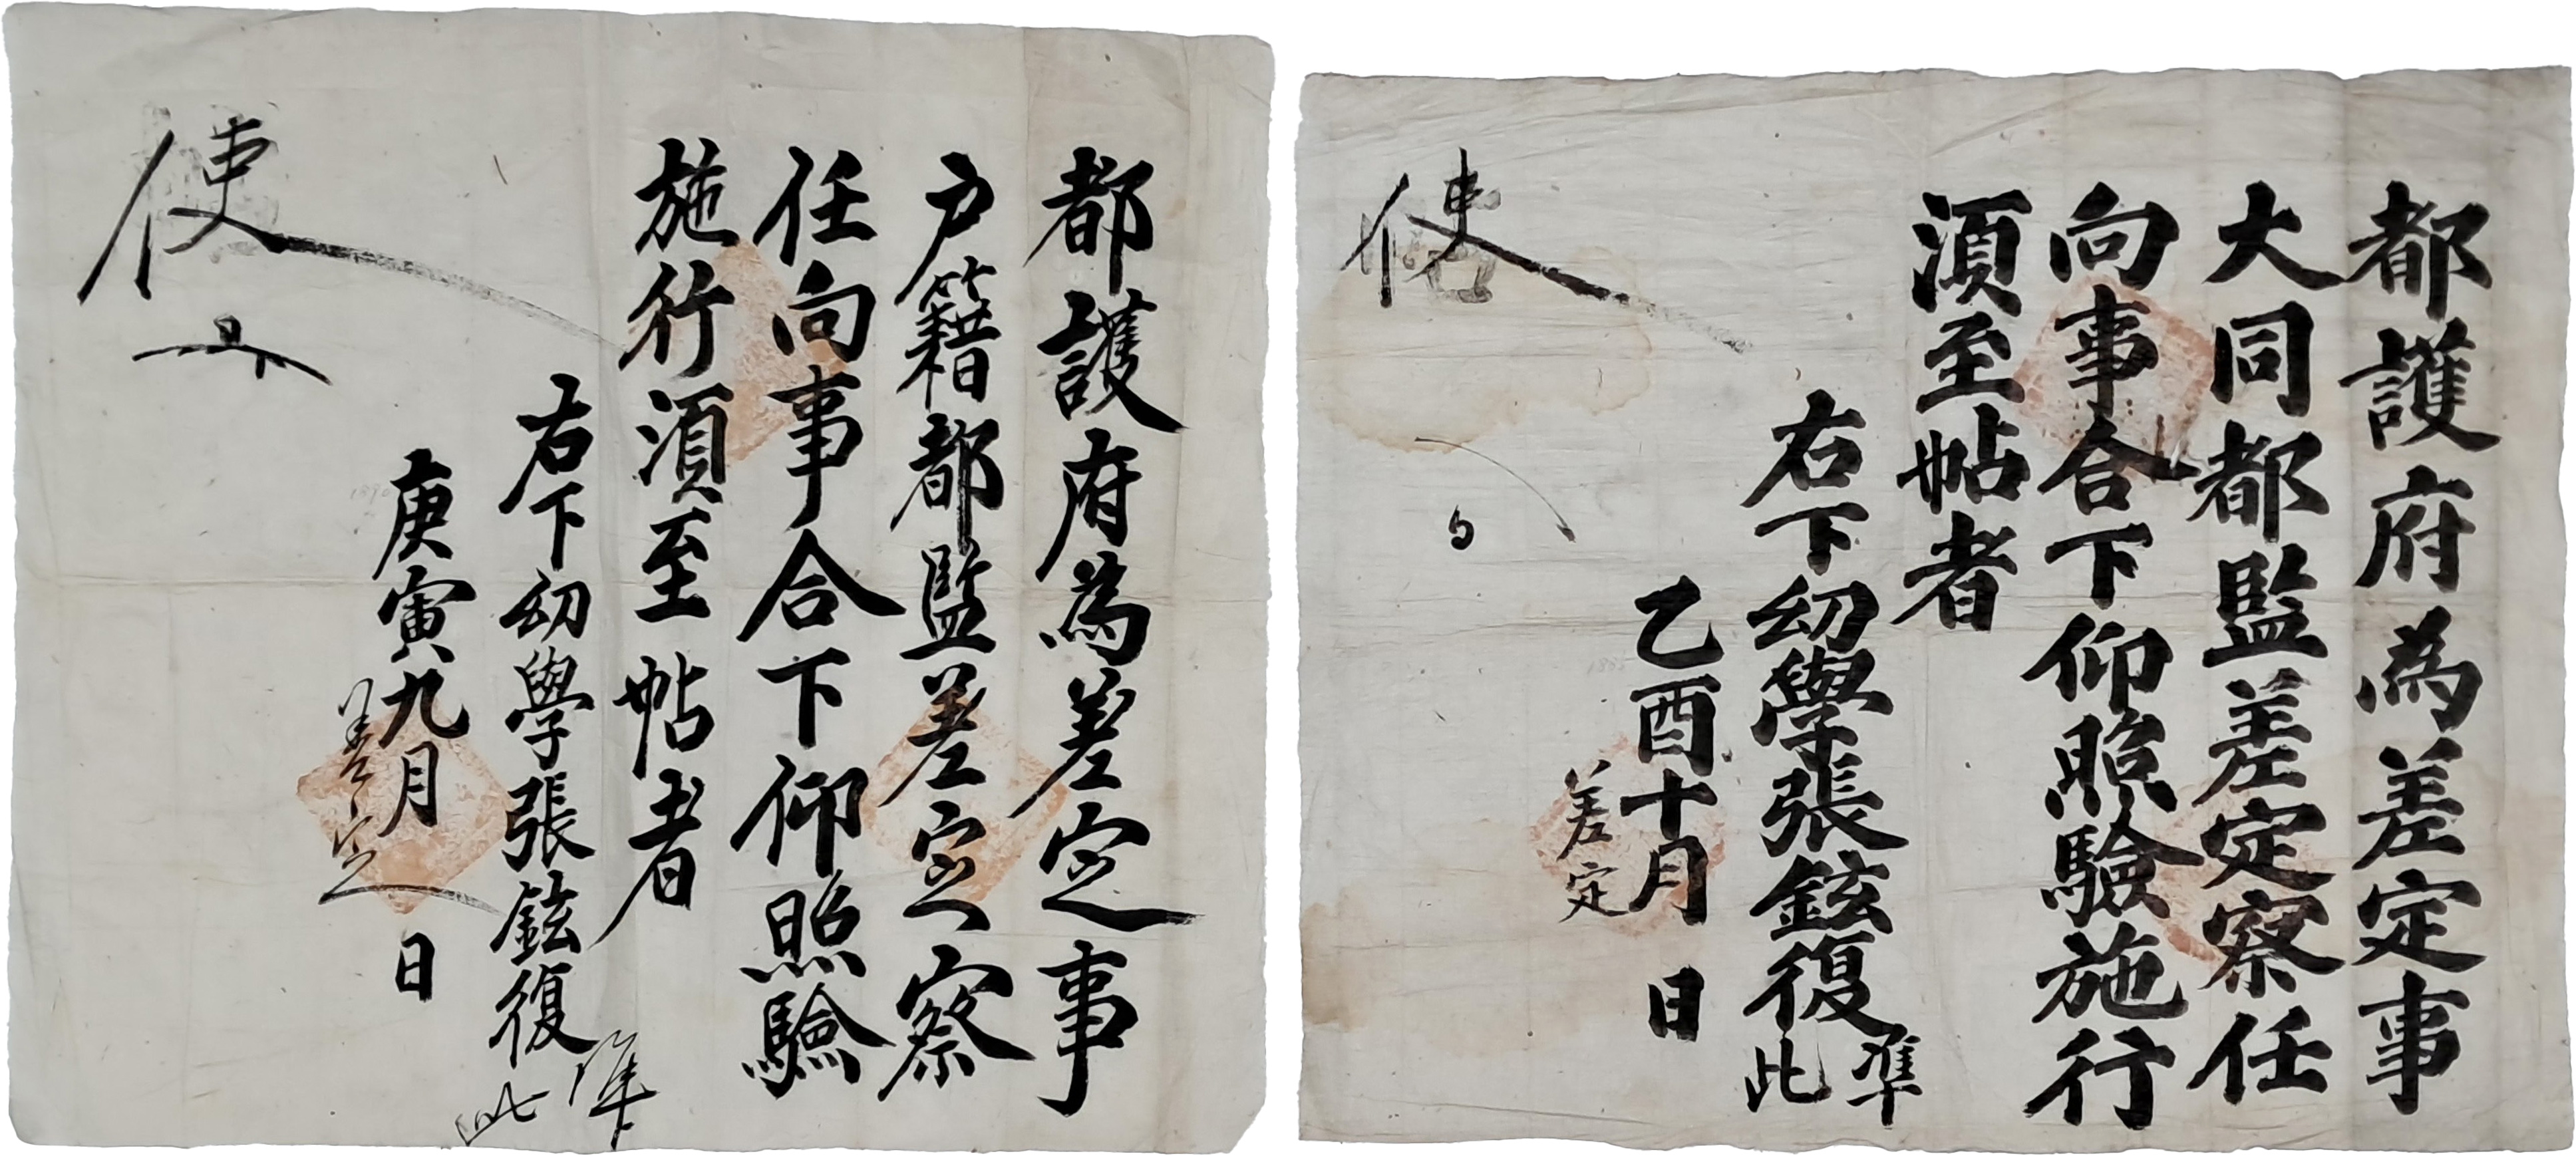 都護府為差定事
大同都監差定察任
向事合下仰照驗施行
湏至帖者
右下幼學張鉉復
準
此
乙酉十月 日
差定
使
都護府為差定事
户籍都監差定察
任向事合下仰照驗
施行湏至帖者
右下幼學張鉉復
準
此
庚寅九月 日
差定
使